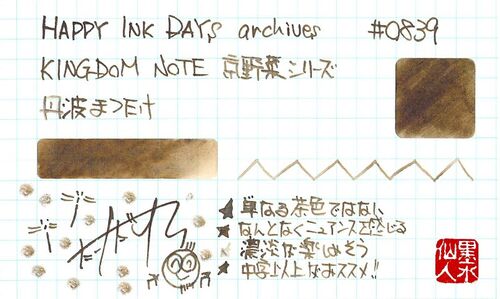 HAPPY INK DAYS archives #0839
KINGDOM NOTE 京野菜シリーズ
丹波まつたけ
だだれ
★ 単なる茶色ではない、
★ なんとなくニュアンスを感じる
★ 濃淡な楽しめそう
★ 中字以上がおススメ!!
墨水
仙人